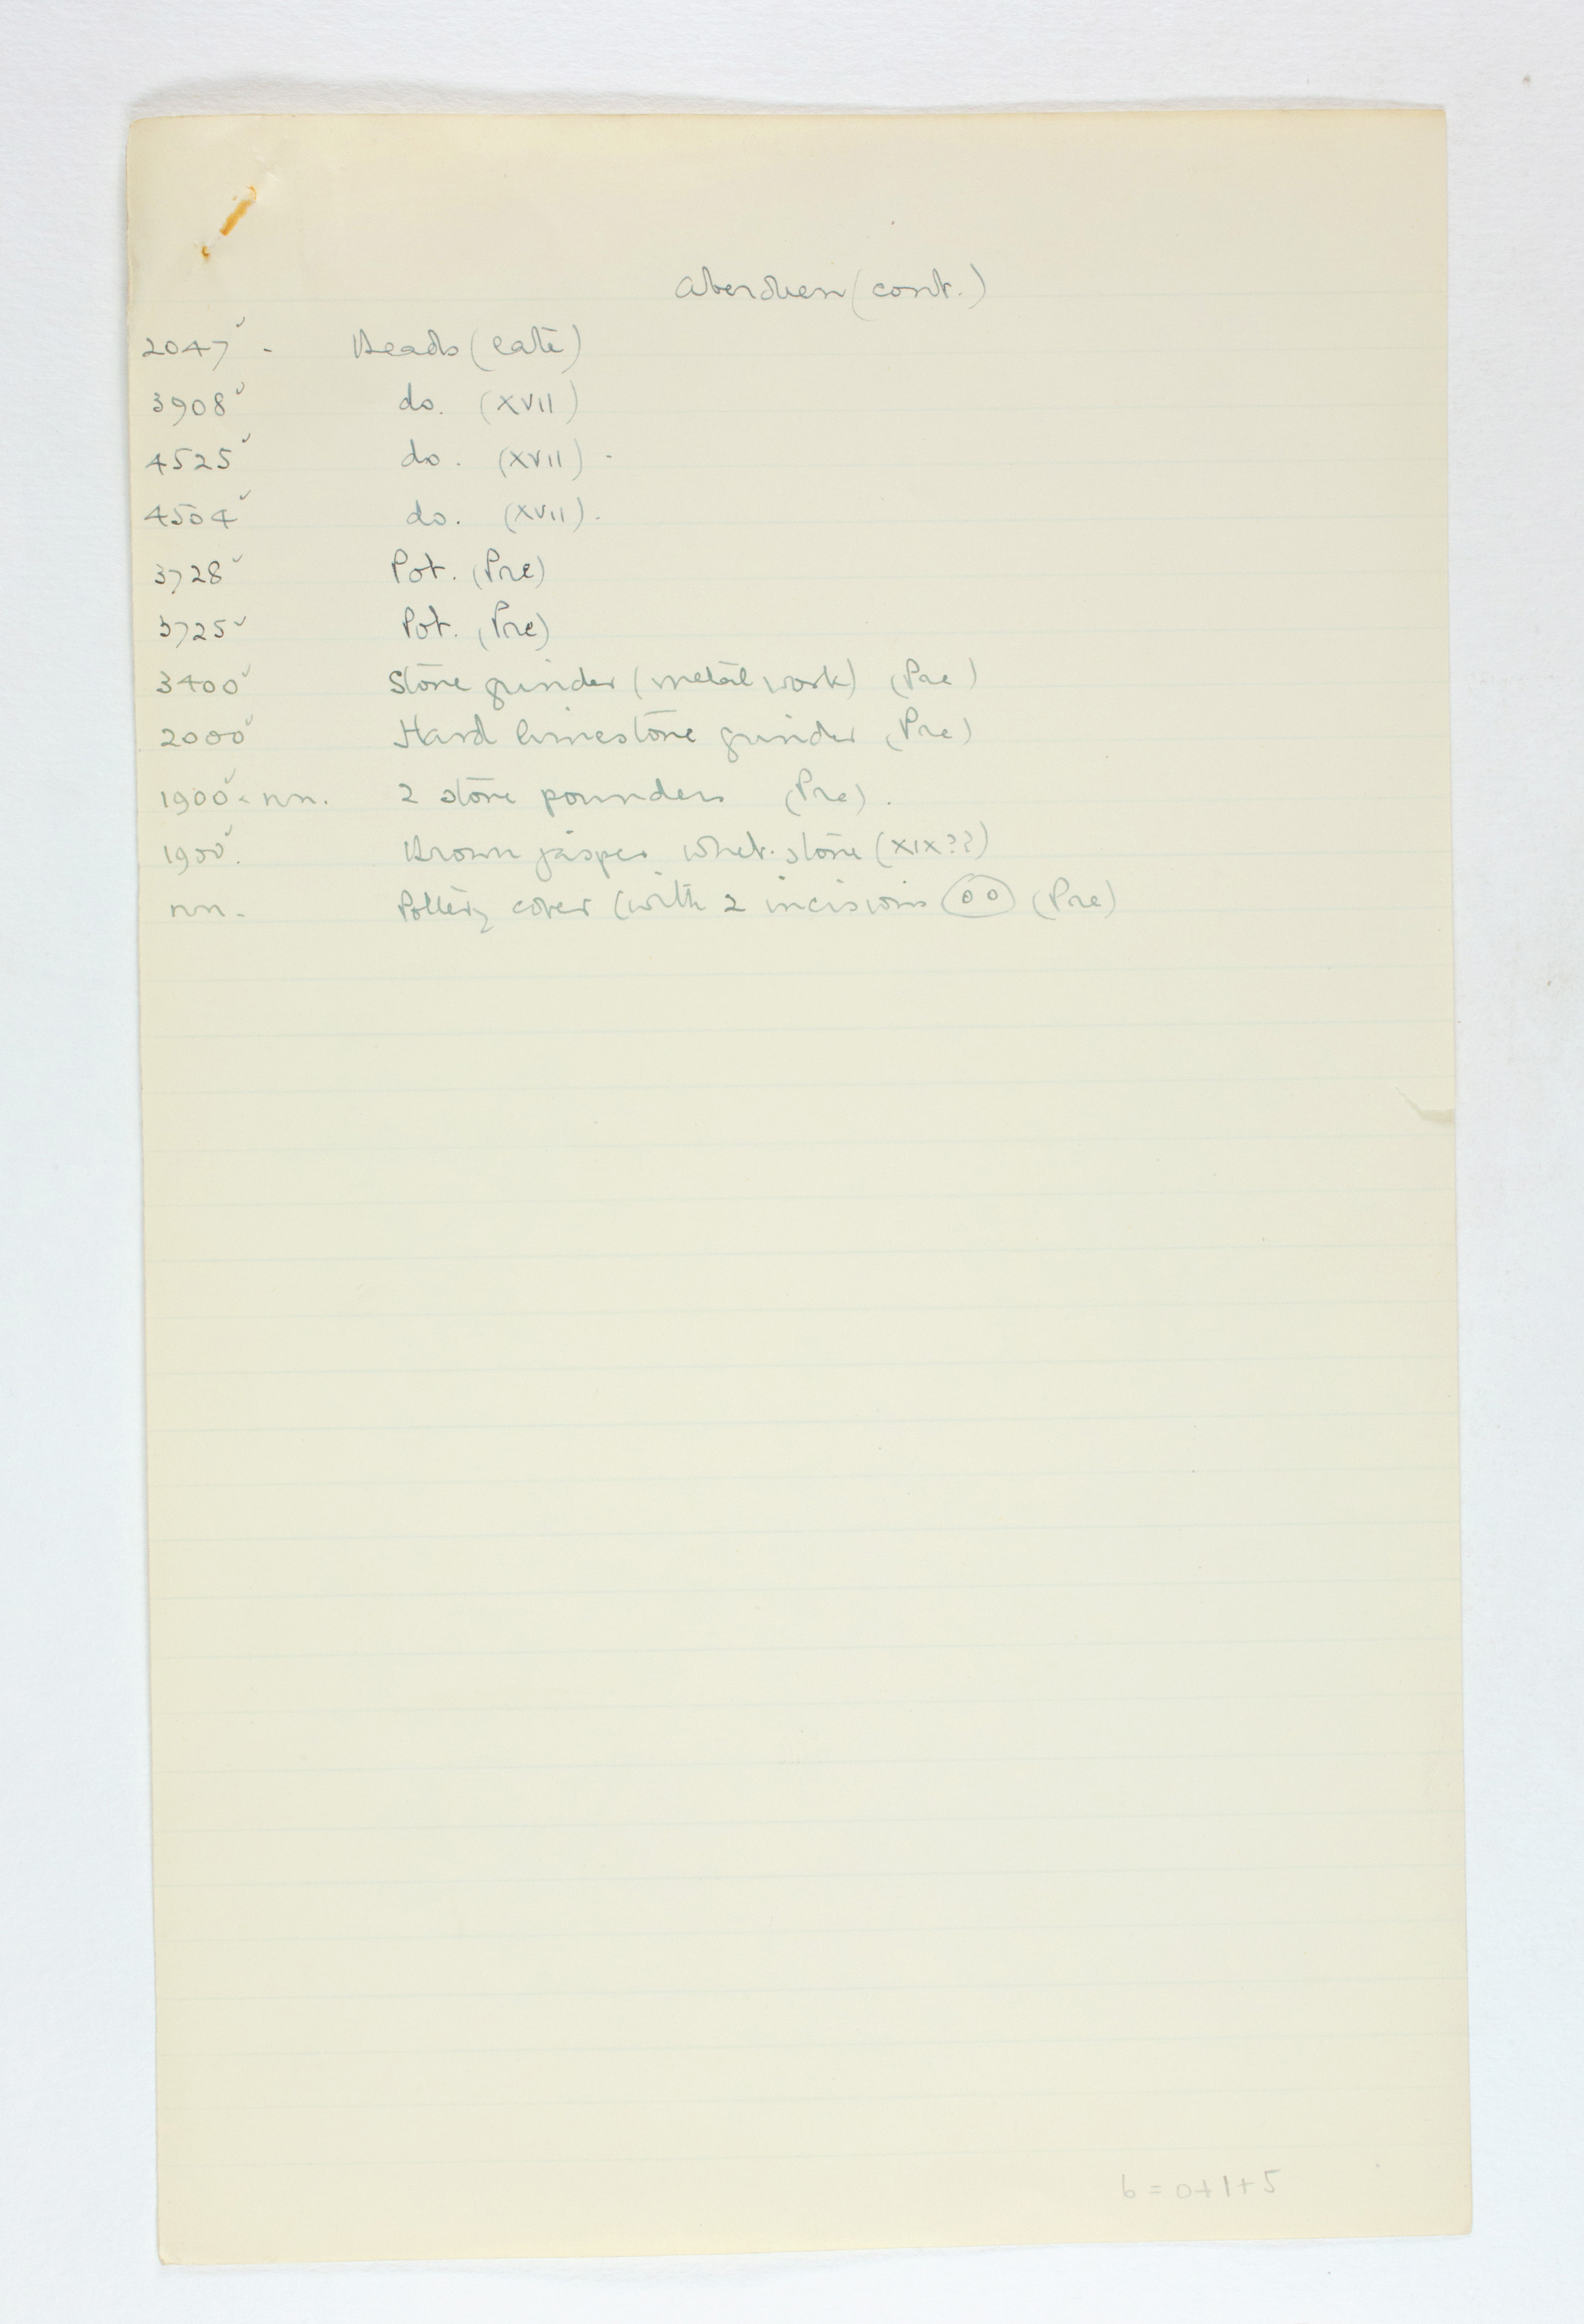 Aberdeen (cont.)
2047 ✓ - Beads (late)
3908 ✓ do. (XVII)
4525 ✓ do. (XVII) -
4504 ✓ do. (XVII).
3728 ✓ Pot. (Pre)
3725 ✓ Pot. (Pre)
3400 ✓ Stone grinder (metal work) (Pre)
2000 ✓ Hard limestone grinder (Pre)
1900 ✓ nn. 2 stone pounders (Pre).
1900 ✓. Brown jasper whet-stone (XIX??)
nn. Pottery cover (with 2 incisions (00) (Pre)
6 = 0+1+5